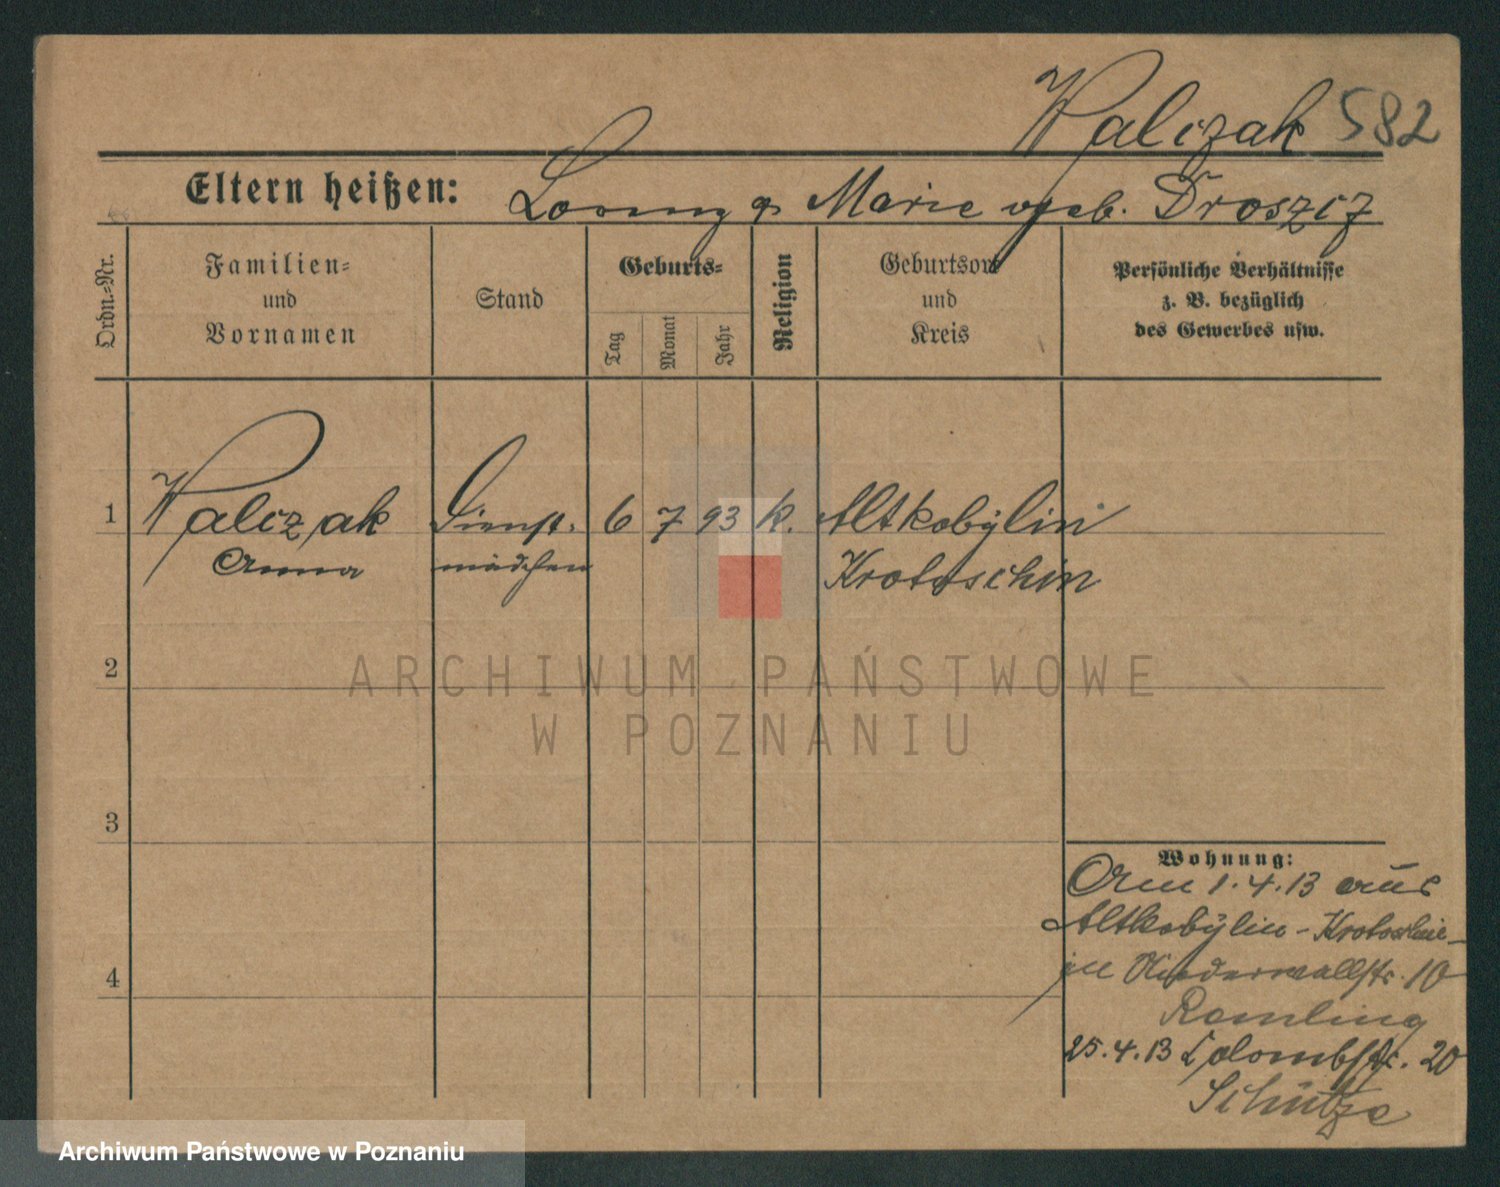 Walczak 582
Eltern heißen: Lorenz & Marie geb. Droszcz
Ordn.-Nr.
Familien-
und
Vornamen
Stand
Geburts-
Tag
Monat
Jahr
Religion
Geburtsort
und
Kreis
Persönliche Verhältnisse
z. B. bezüglich
des Gewerbes usw.
1 Walczak Dienst- 6 7 93 k. Altkobylin
Anna mädchen Krotoschin
2
3
4
Wohnung:
Am 1.4.13 aus
Altkobylin - Krotoschin
in Niederwallstr. 10
Ramling
25.4.13 Colombstr. 20
Schütze
ARCHIWUM PAŃSTWOWE
W POZNANIU
Archiwum Państwowe w Poznaniu